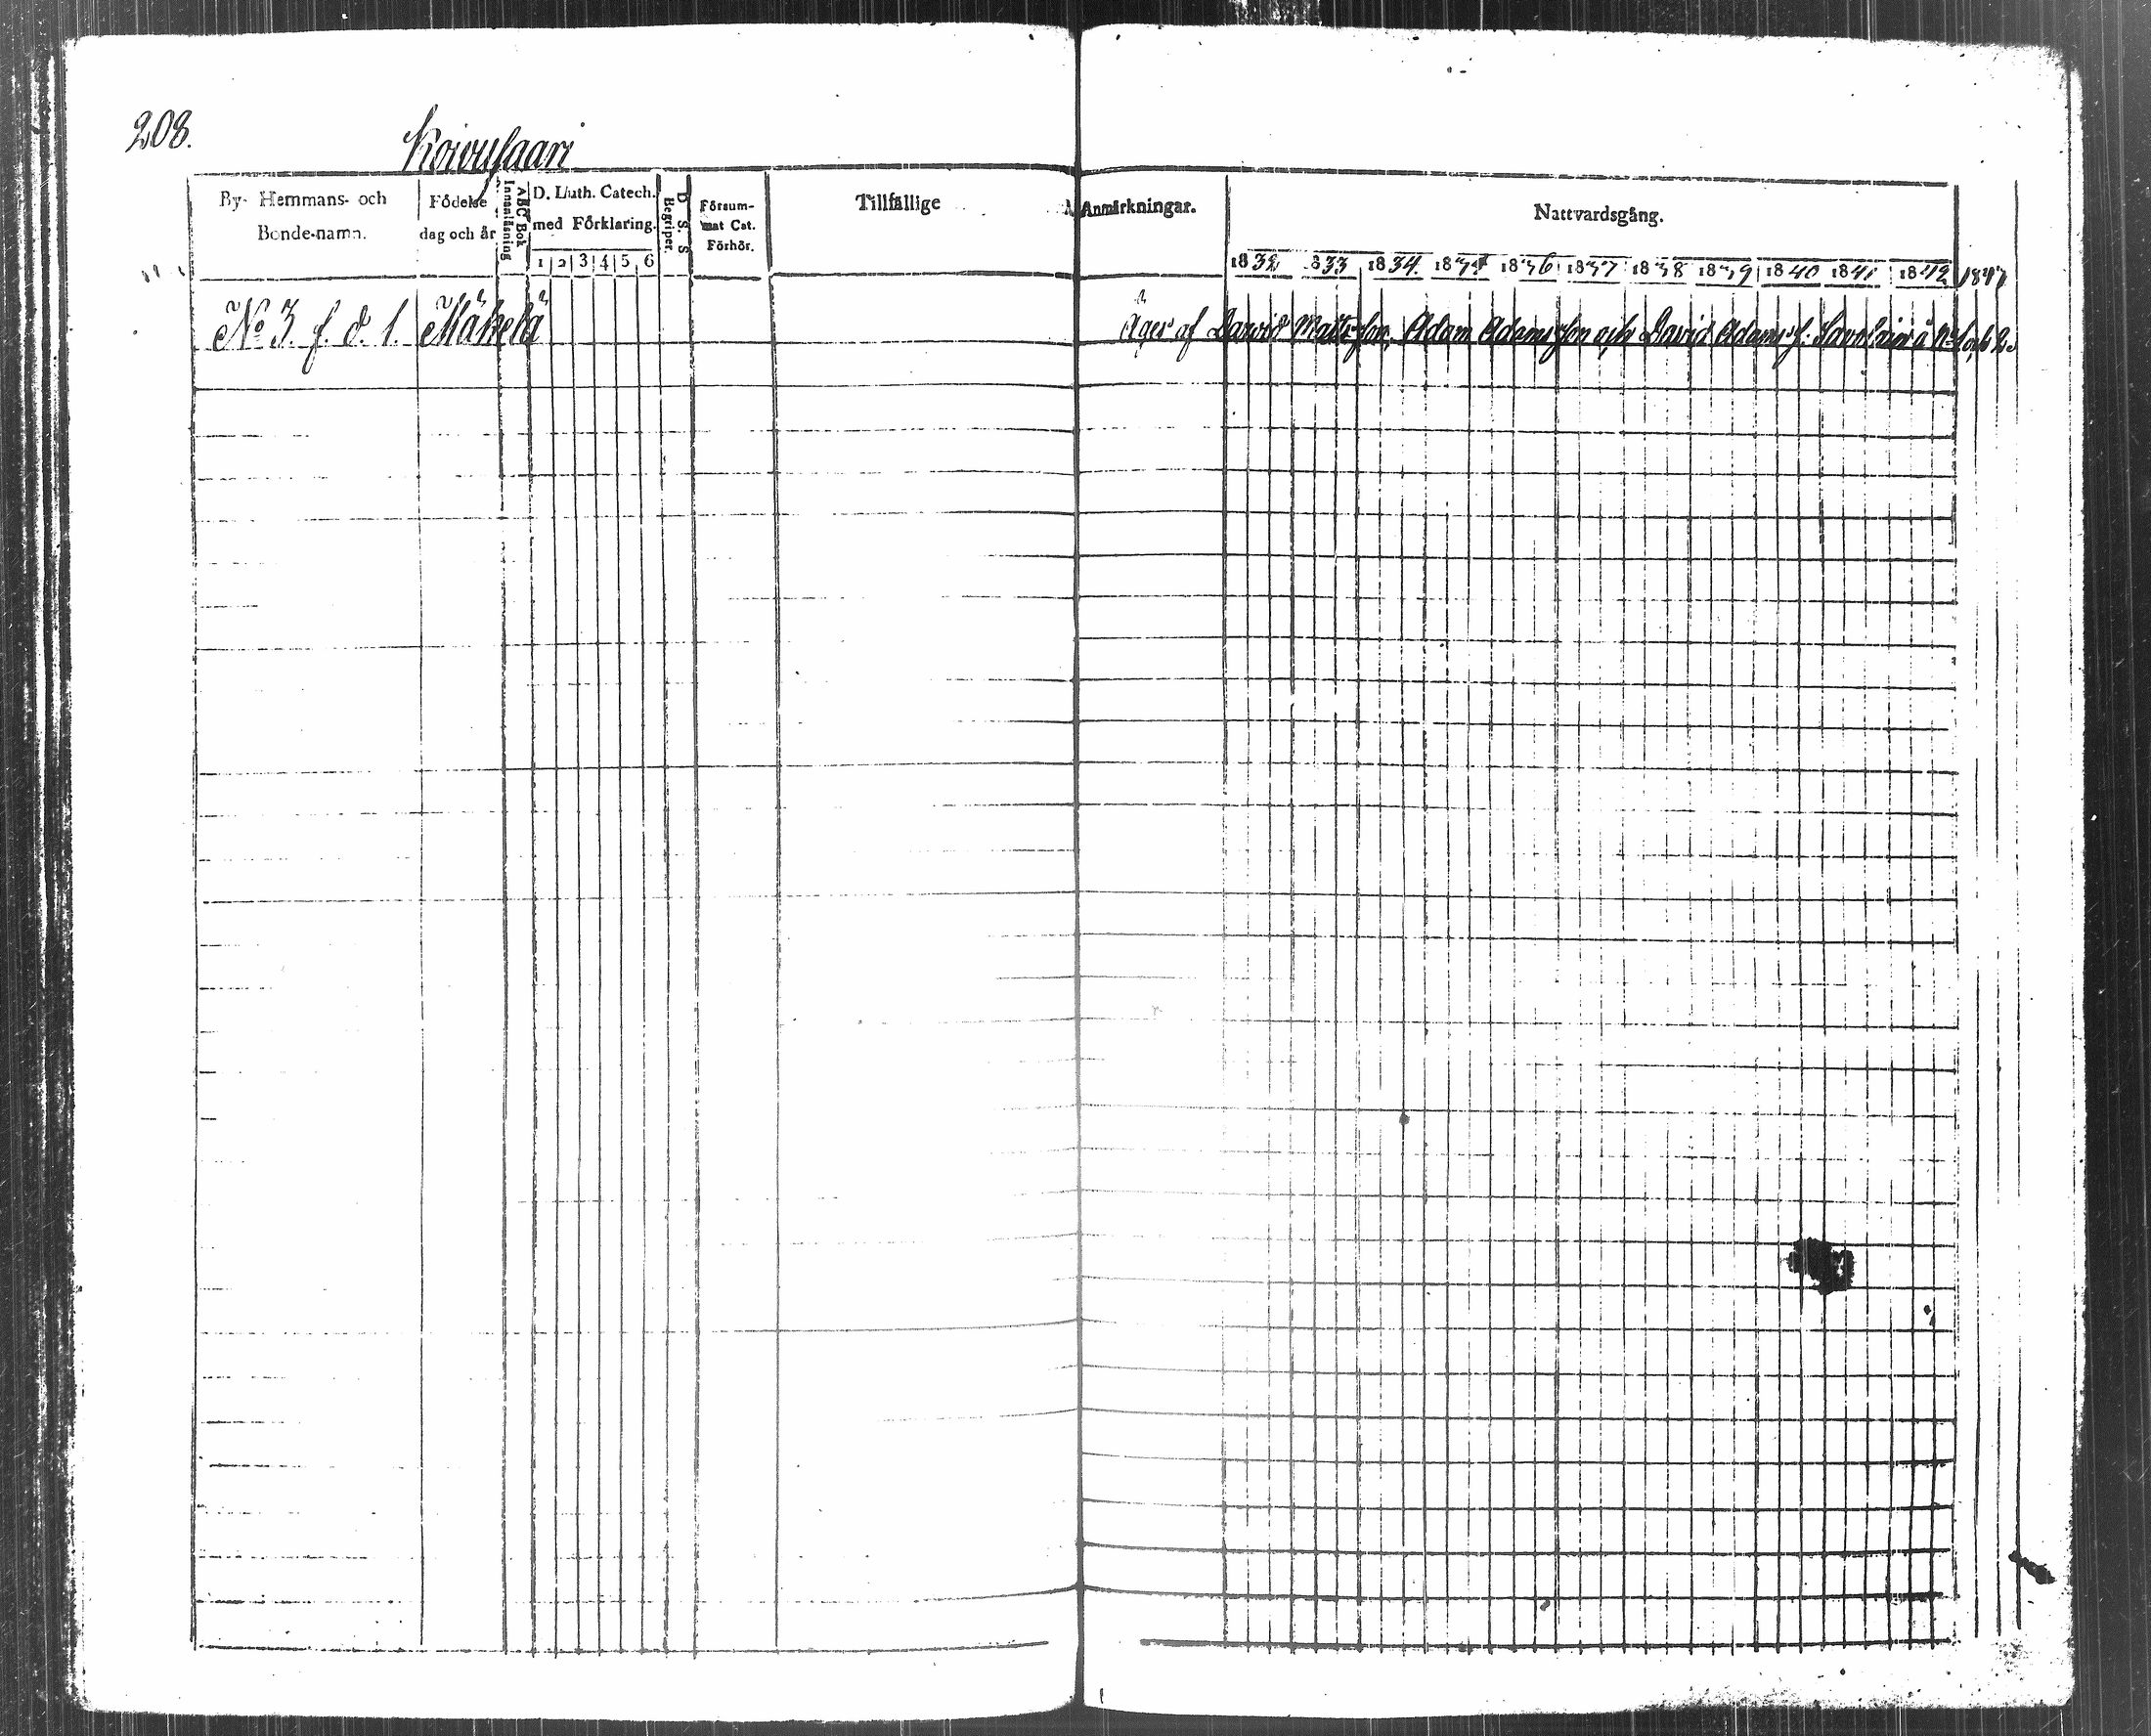 208.
Koivusaari
By- Hemmans- och
Bonde-namn.
Födelse
dag och år
ABC Bok
Innanläsning
D. Luth. Catech.
med Förklaring.
1 2 3 4 5 6
D. S. S
Begriper.
Försum-
mat Cat.
Förhör.
Tillfällige
Anmärkningar.
Nattvardsgång.
1832 1833 1834 1835 1836 1837 1838 1839 1840 1841 1842 1843
No 3. f. d. 1. Mäkelä
Äges af David Mattsson, Adam Adamsson och David Adamss: à No 1 och 2.